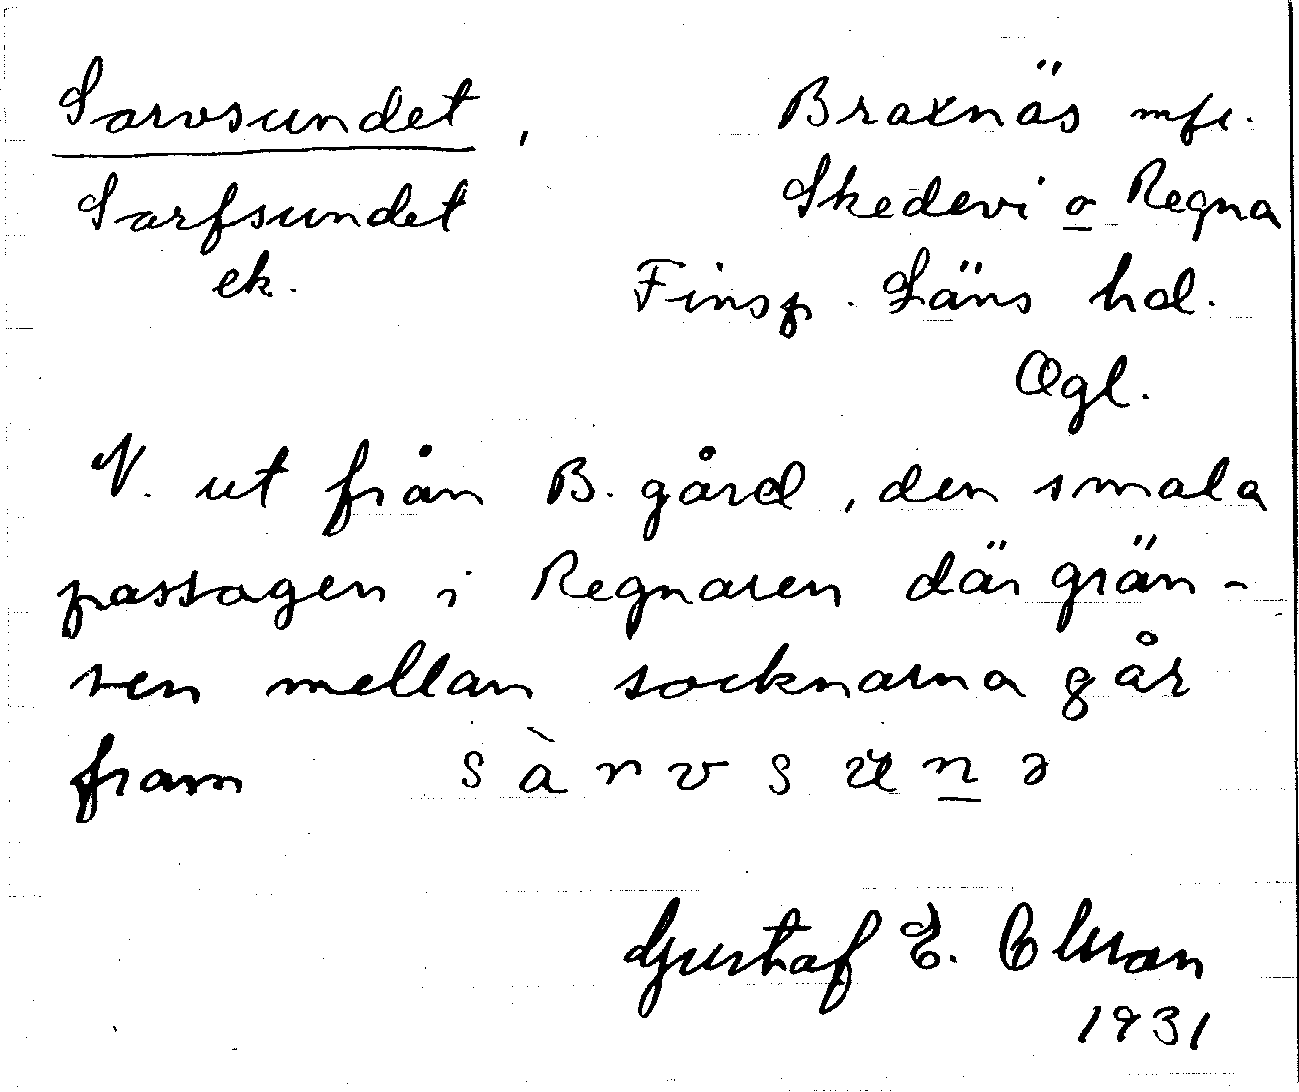 Sarvsundet, Braxnäs mfl.
Sarfsundet Skedevi o Regna
ek. Finsp. Läns hd.
Ögl.
N. ut från B. gård, den smala
passagen i Regnaren där grän-
sen mellan socknarna går
fram sàrvsʉn̲ə
Gustaf E.
1931